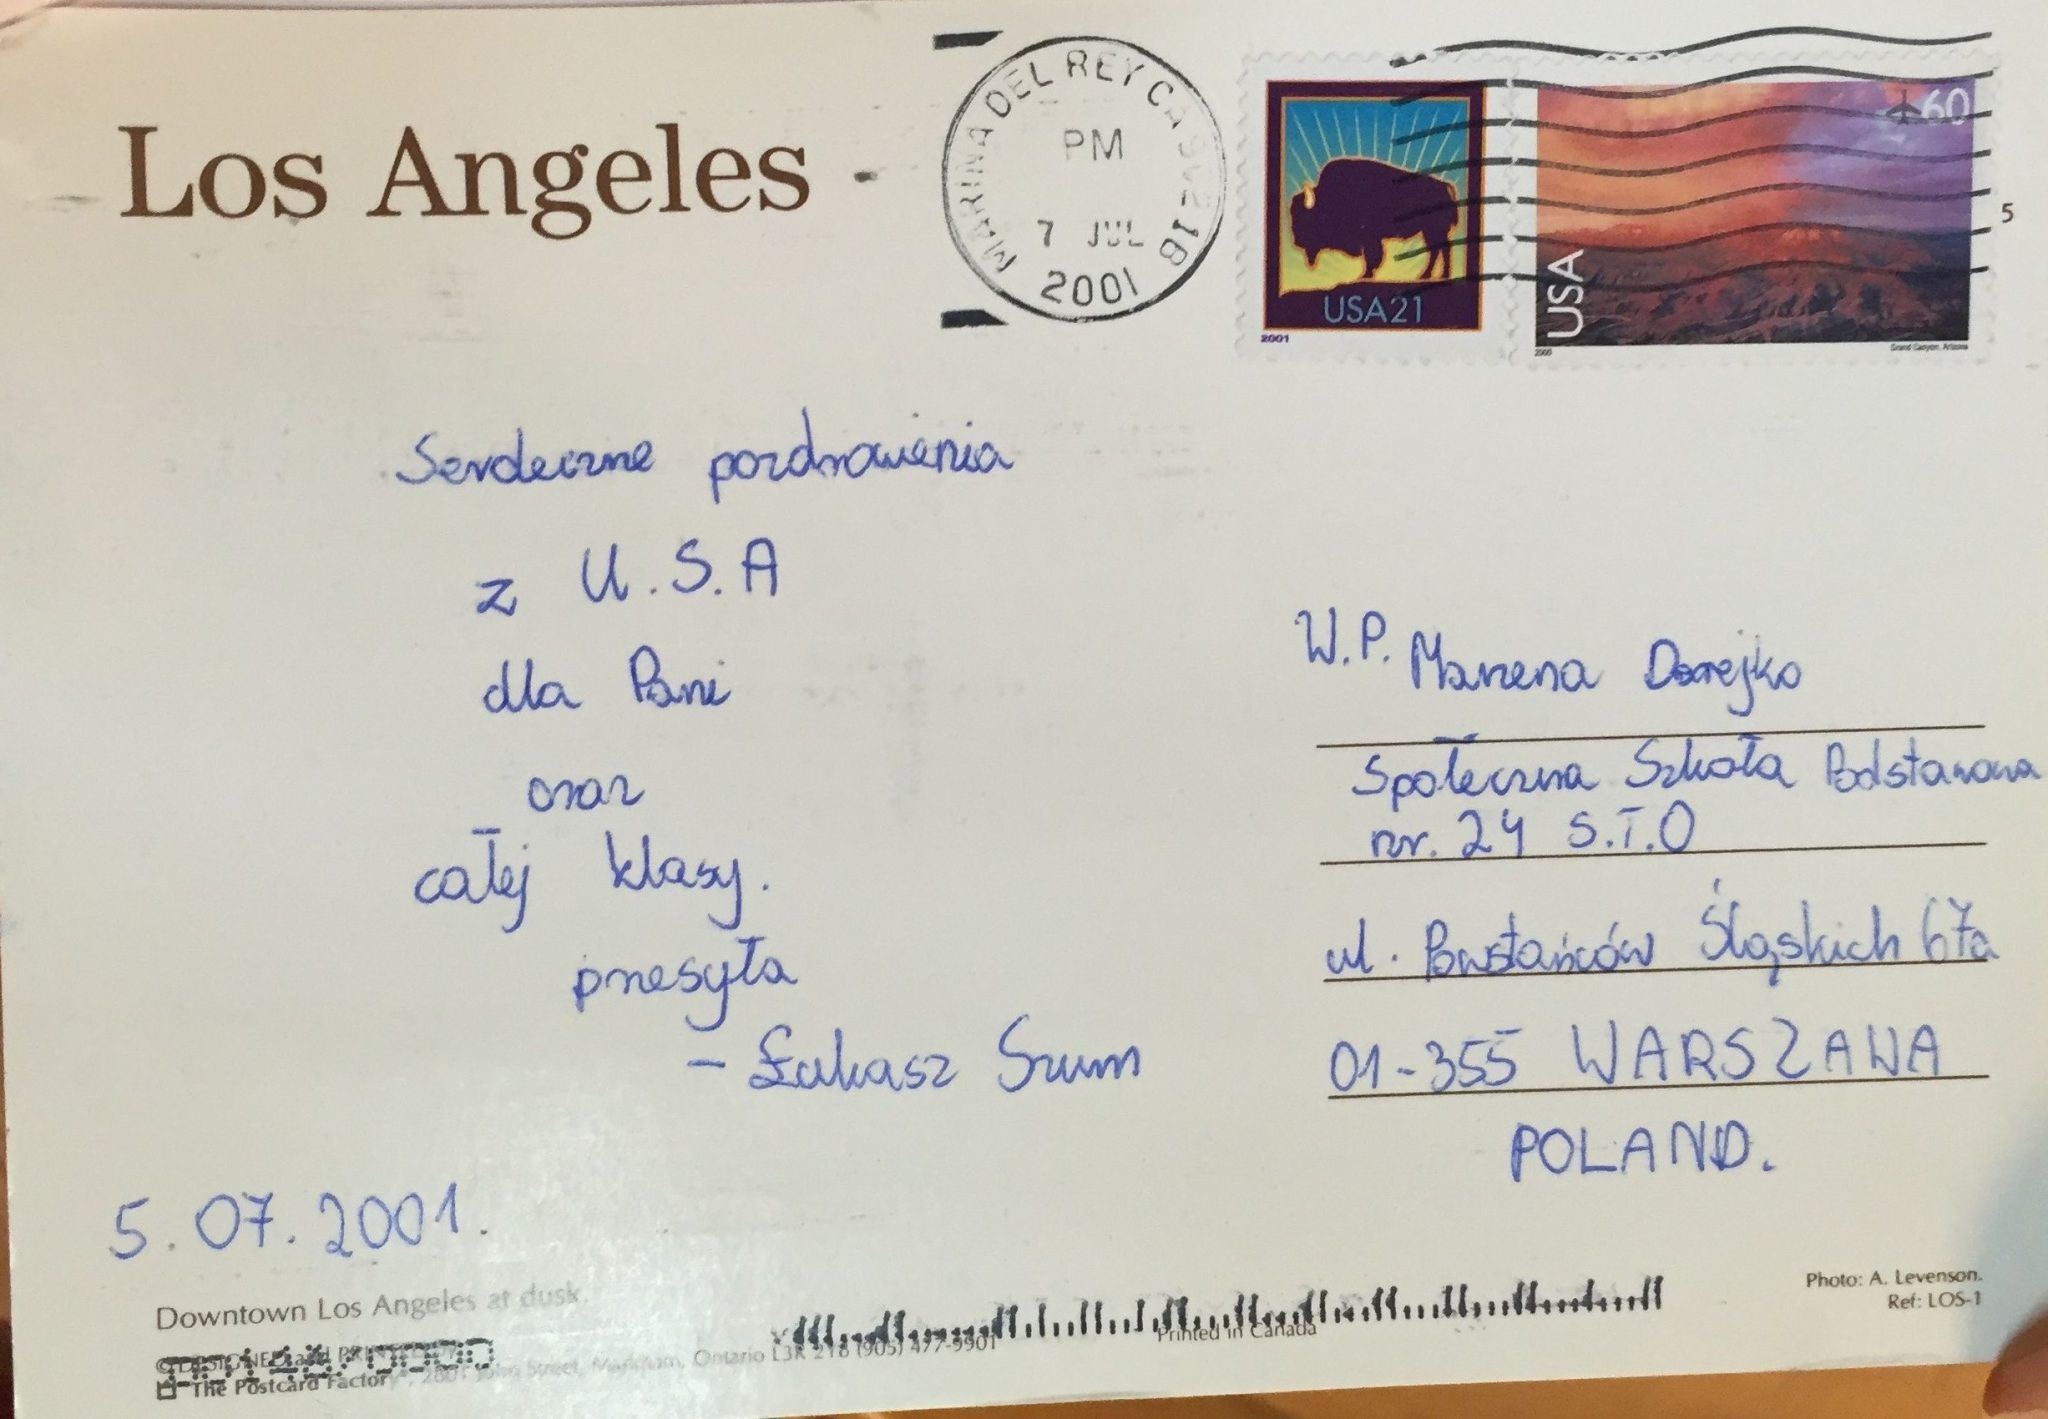 Los Angeles
MARINA DEL REY CA
PM
7 JUL
2001
USA21
2001
60
USA
2000
Grand Canyon, Arizona
5
Serdeczne pozdrowienia
z U.S.A
dla Pani
oraz
całej klasy.
przesyła
- Łukasz Szum
W.P. Marzena Dorejko
Społeczna Szkoła Podstawowa
nr. 24 S.T.O
ul. Powstańców Śląskich 67a
01-355 WARSZAWA
POLAND.
5.07.2001.
Downtown Los Angeles at dusk.
Photo: A. Levenson.
Ref: LOS-1
Printed in Canada
© DESIGNED and PRINTED
The Postcard Factory, 2801 John Street, Markham, Ontario L3R (905) 477-9901